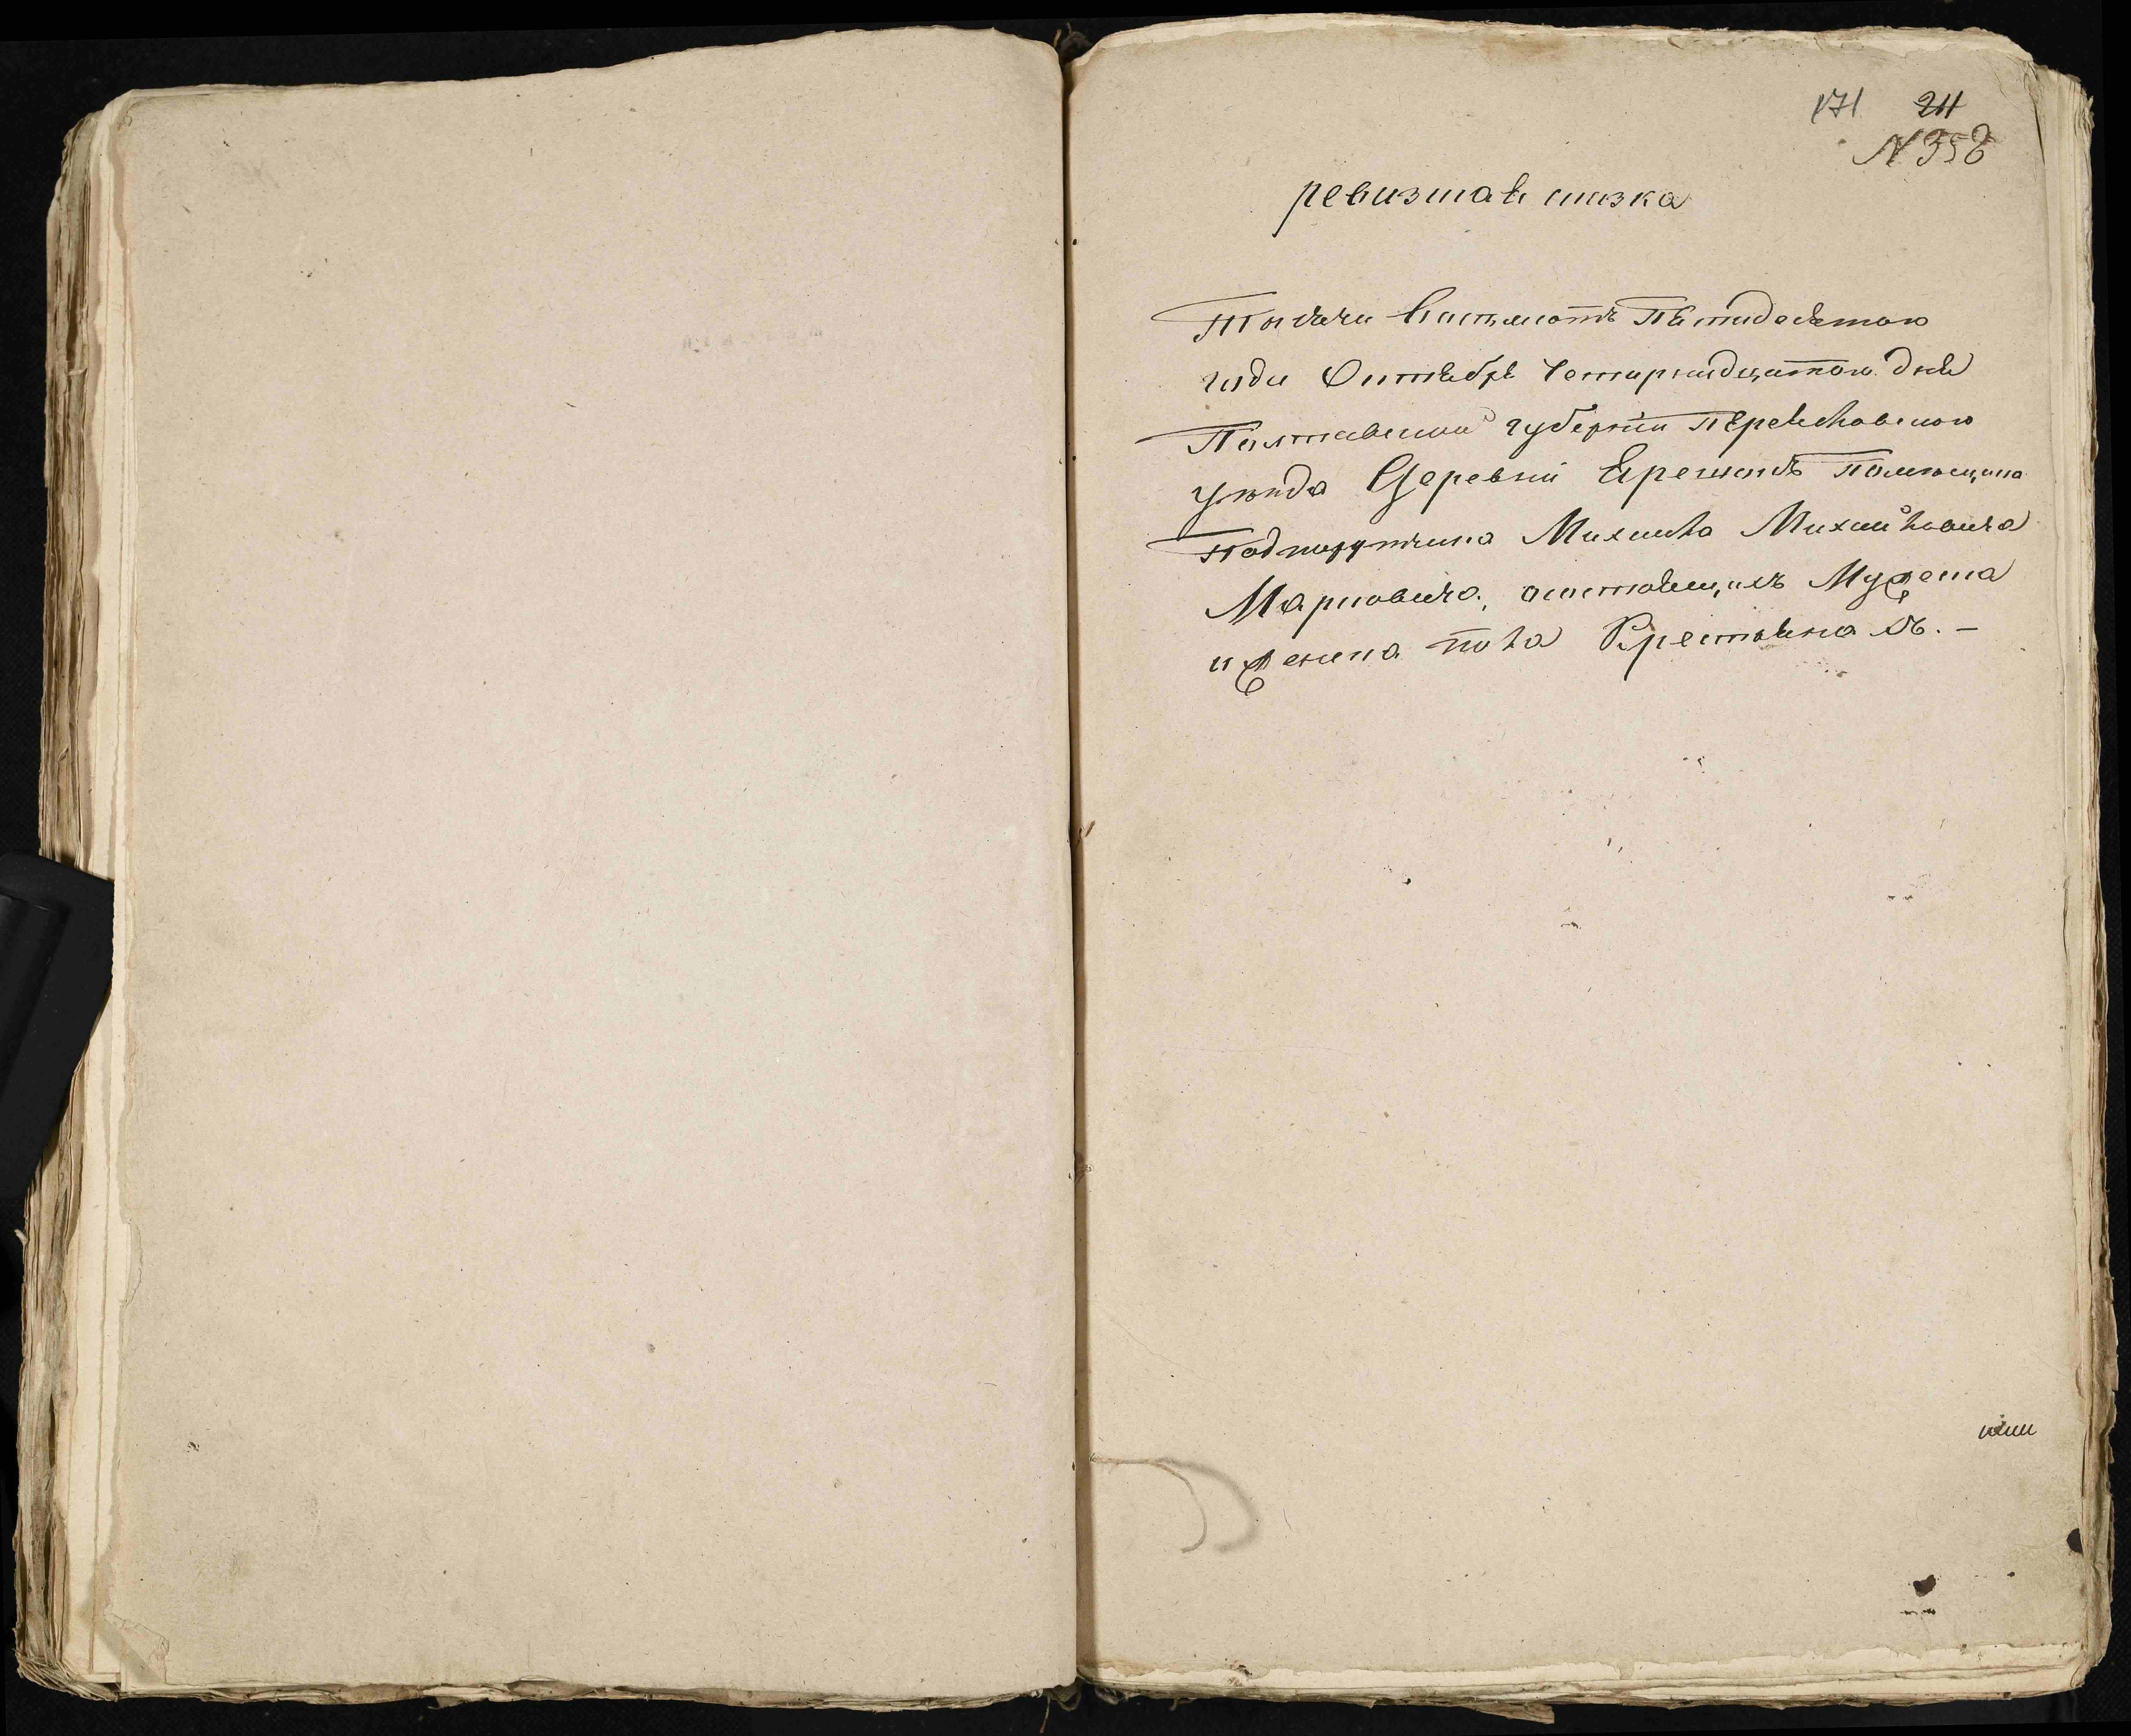 171 211
№ 358
ревизшая сказка
Тысяча восемсотъ пятидесятого
года Октября Четирнадцатого дня
Полтавской губерніи Переясловского
уезда Деревни помещика
Подпоручика Михаила Михайловича
Марковича, состоящихъ Мужеска
и женска пола Крестьянахъ. —